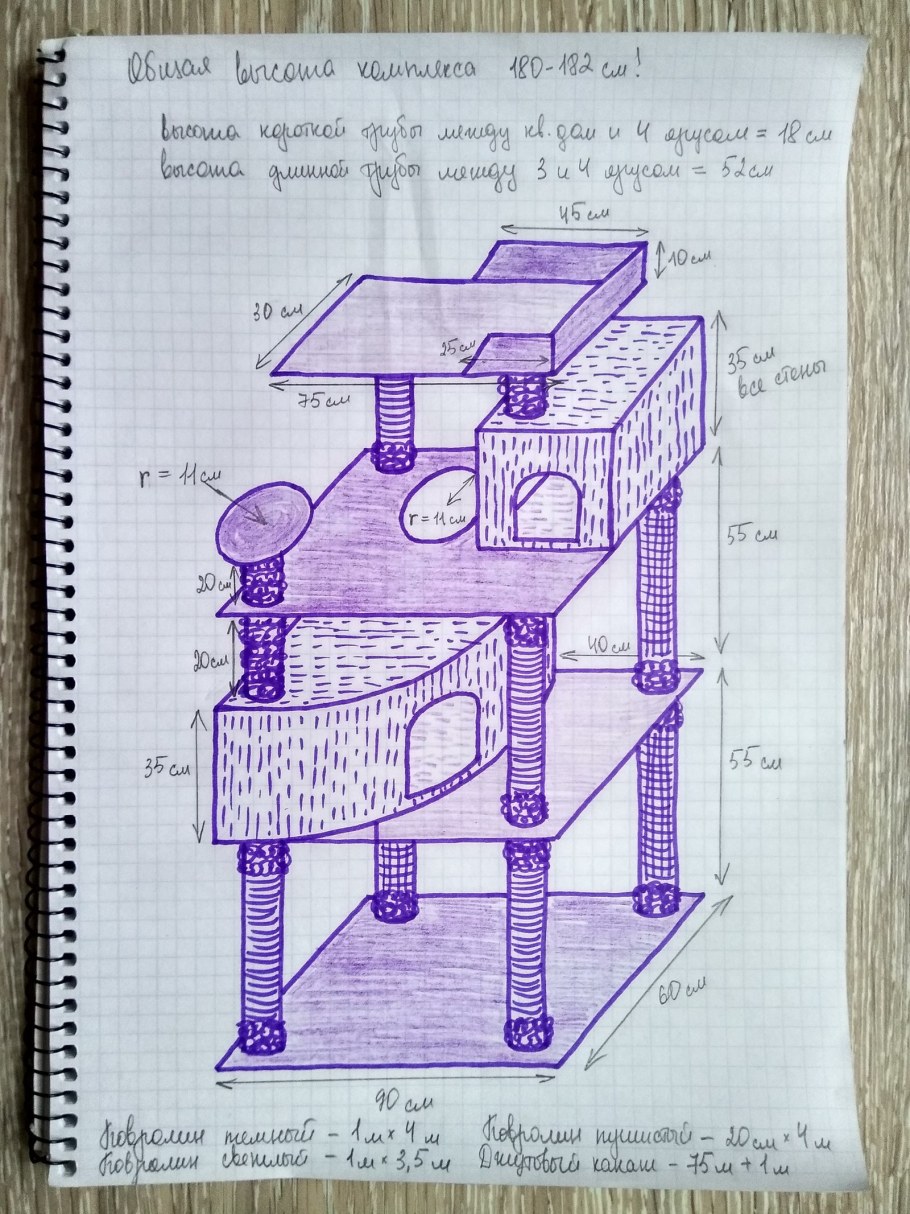 Общая высота комплекса 180-182 см!
высота короткой трубы между кв. дом и 4 ярусом = 18 см
высота длинной трубы между 3 и 4 ярусом = 52 см
45 см
10 см
30 см
25 см
35 см
все стены
75 см
r = 11 см
r = 11 см
55 см
20 см
20 см
40 см
35 см
55 см
60 см
90 см
Ковролин темный - 1 м × 4 м
Ковролин пушистый - 20 см × 4 м
Ковролин светлый - 1 м × 3,5 м
Джутовый канат - 75 м + 1 м